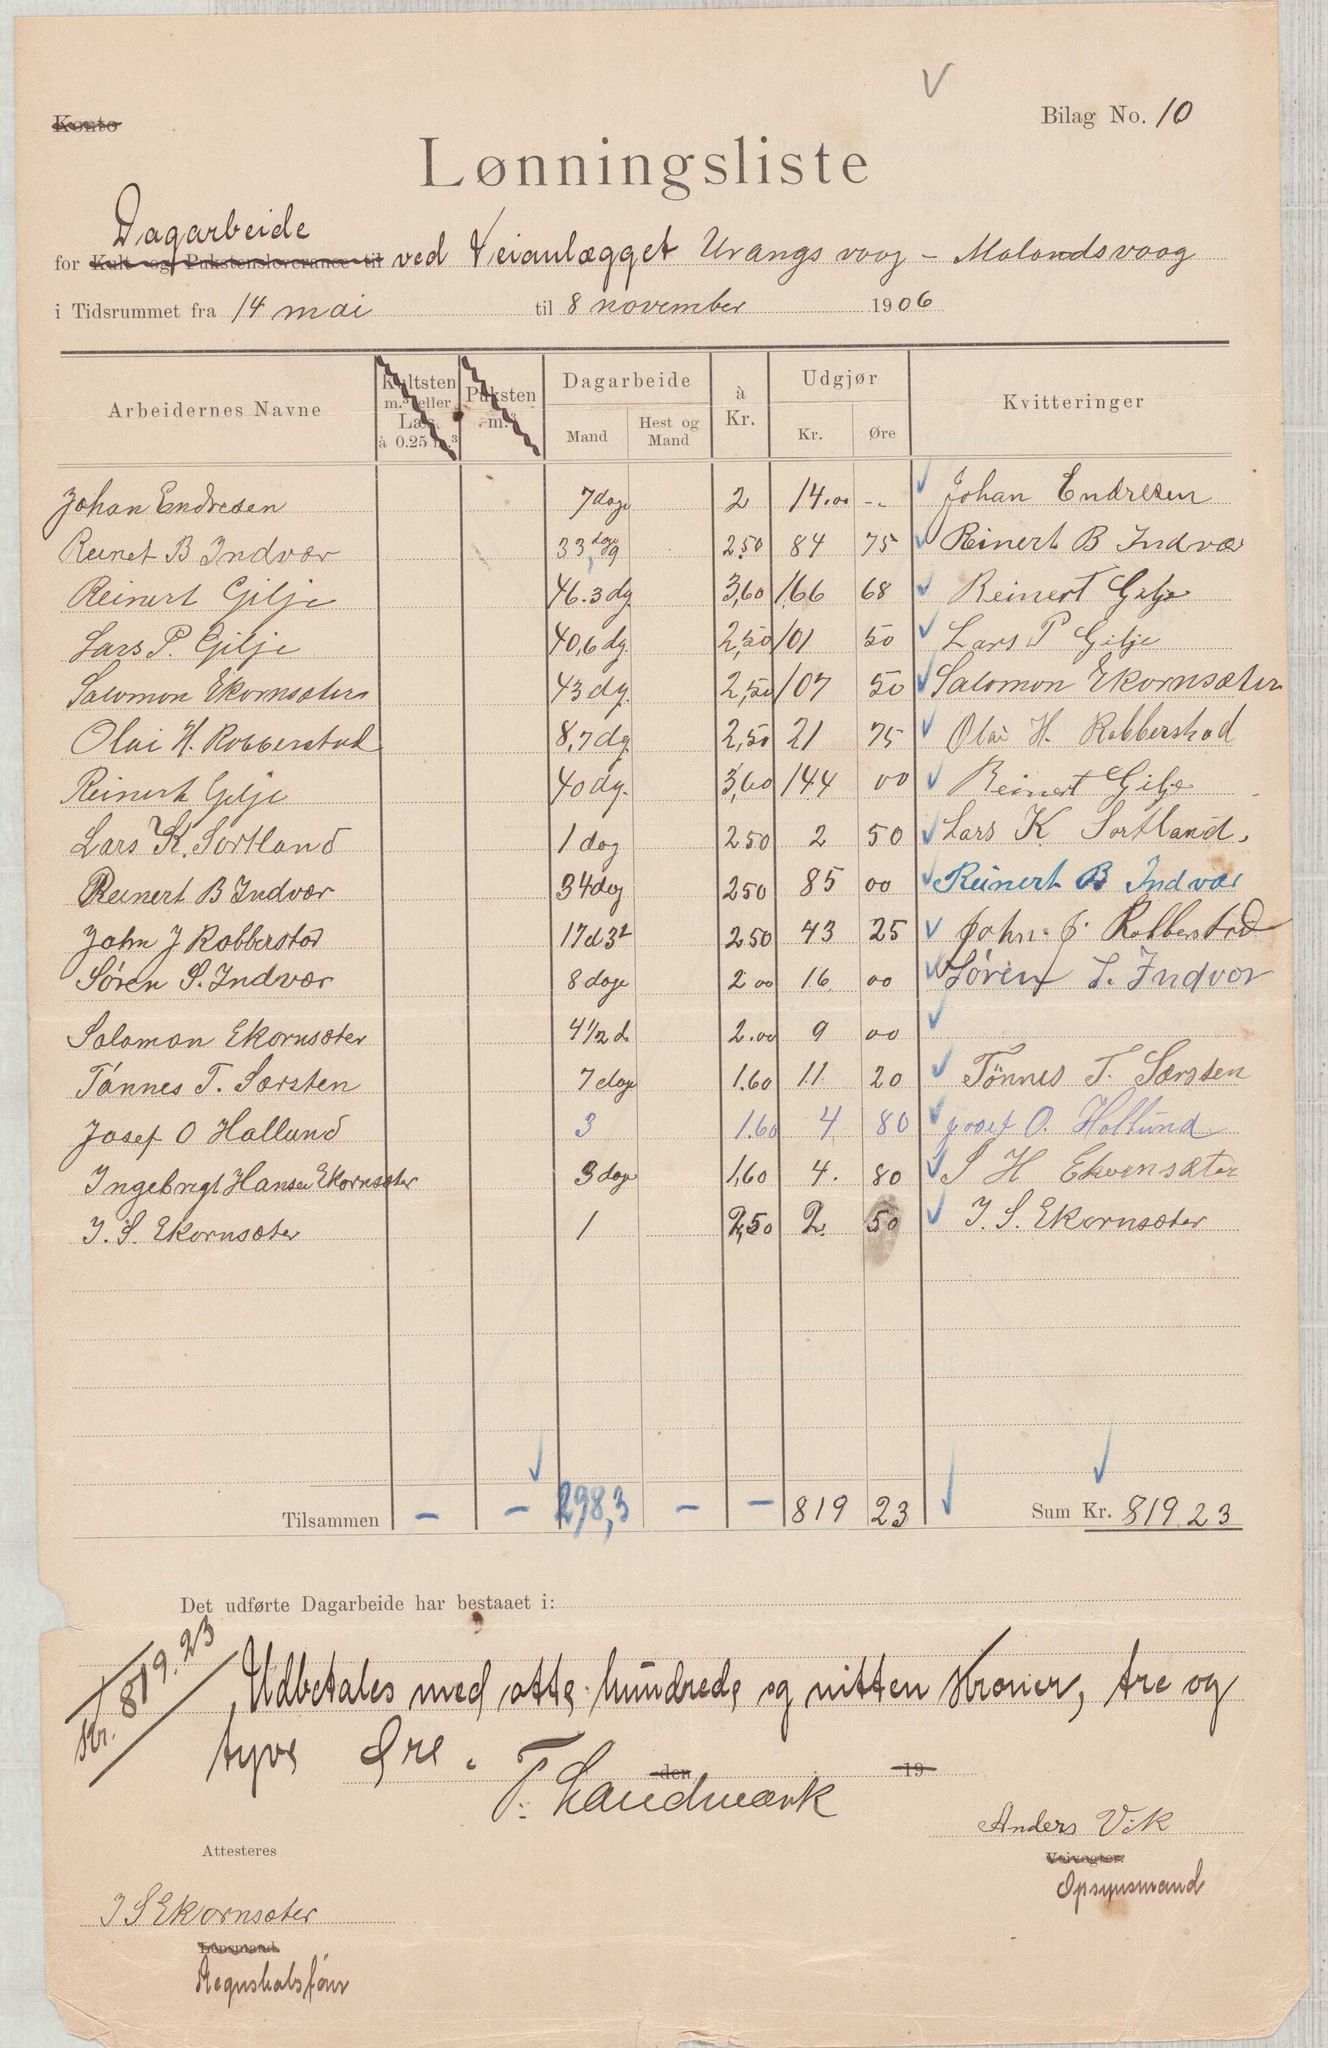 Konto
Bilag No. 10
Lønningsliste
Dagarbeide
for Kult- og Pukstensleverance til ved Veianlægget Urangsvaag - Malandsvaag
i Tidsrummet fra 14 mai til 8 november 1906
Arbeidernes Navne | Kultsten m.³ eller Læs à 0.25 m.³ | Puksten m.³ | Dagarbeide | à Kr. | Udgjør | Kvitteringer
Mand | Hest og Mand | Kr. | Øre
Johan Endresen 7 dage 2 14.00 -- Johan Endresen
Reinet B Indvær 33,9 dage 2.50 84 75 Reinert B Indvær
Reinert Gilje 46.3 dg. 3,60 166 68 Reinert Gilje
Lars P. Gilje 40,6 dg. 2,50 101 50 Lars P Gilje
Salomon Ekornsæter 43 dg. 2,50 107 50 Salomon Ekornsæter
Olai H. Robberstad 8,7 dg. 2,50 21 75 Olai H. Robberstad
Reinert Gilje 40 dg. 3,60 144 00 Reinert Gilje
Lars K. Sortland 1 dag 2 50 2 50 Lars K Sortland.
Reinert B Indvær 34 dag 2 50 85 00 Reinert B Indvær
John J Robberstad 17 d 3 t 2 50 43 25 John J. Robberstad
Søren S. Indvær 8 dage 2 00 16 00 Søren S. Indvær
Salomon Ekornsæter 4 1/2 d 2.00 9 00
Tønnes T. Særsten 7 dage 1.60 11 20 Tønnes T. Særsten
Josef O Hallund 3 1.60 4 80 Josef O. Hallund
Ingebrigt Hansen Ekornsæter 3 dage 1,60 4. 80 I H Ekornsæter
I. S. Ekornsæter 1 2,50 2. 50 I. S. Ekornsæter
Tilsammen - - 298,3 - - 819 23 Sum Kr. 819 23
Det udførte Dagarbeide har bestaaet i:
Kr. 819.23
Udbetales med otte hundrede og nitten Kroner, tre og
tyve Øre.
den 19
T. Landmark
Anders Vik
Veivogter.
Opsynsmand
Attesteres
I S Ekornsæter
Lensmand.
Regnskabsfører